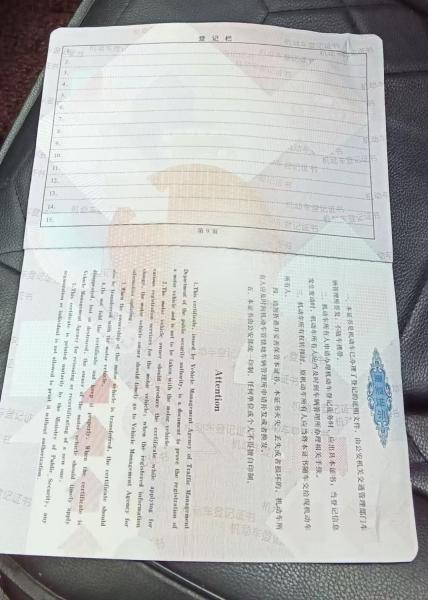 登记栏
1.
2.
3.
4.
5.
6.
7.
8.
9.
10.
11.
12.
13.
14.
15.
第9页
重要提示
一、本证书是机动车已办理了登记的证明文件，由公安机关交通管理部门车
辆管理所签发，不随车携带。
二、机动车所有人申请办理机动车登记业务时，应出具本证书；当登记信息
发生变动时，机动车所有人应当及时到车辆管理所办理相关手续。
三、机动车所有权转移时，原机动车所有人应当将本证书随车交给现机动车
所有人。
四、请勿折叠并妥善保管本证书。本证书灭失、丢失或者损坏的，机动车所
有人应及时向机动车管辖地车辆管理所申请补发或者换发。
五、本证书由公安部统一印制，任何单位或个人不得擅自印制。
Attention
1.This certificate, issued by Vehicle Management Agency of Traffic Management
Department of the public security authority, is a document to prove the registration of
a motor vehicle and is not to be taken with the motor vehicle.
2.The motor vehicle owner should produce the certificate while applying for
various registration services for the motor vehicle; when the registered information
change, the motor vehicle owner should timely go to Vehicle Management Agency for
information updating.
3.When the ownership of the motor vehicle is transferred, the certificate should
also be transferred with the motor vehicle.
4.Do not fold the certificate and keep it properly. When the certificate is
disappeared, lost or destroyed, the owner of the motor vehicle should timely apply
Vehicle Management Agency for reissuing or recertification of a new one.
5.This certificate is printed unitarily by the Ministry of Public Security, any
organization or individual is not allowed to print it without authorization.
机动车登记证书